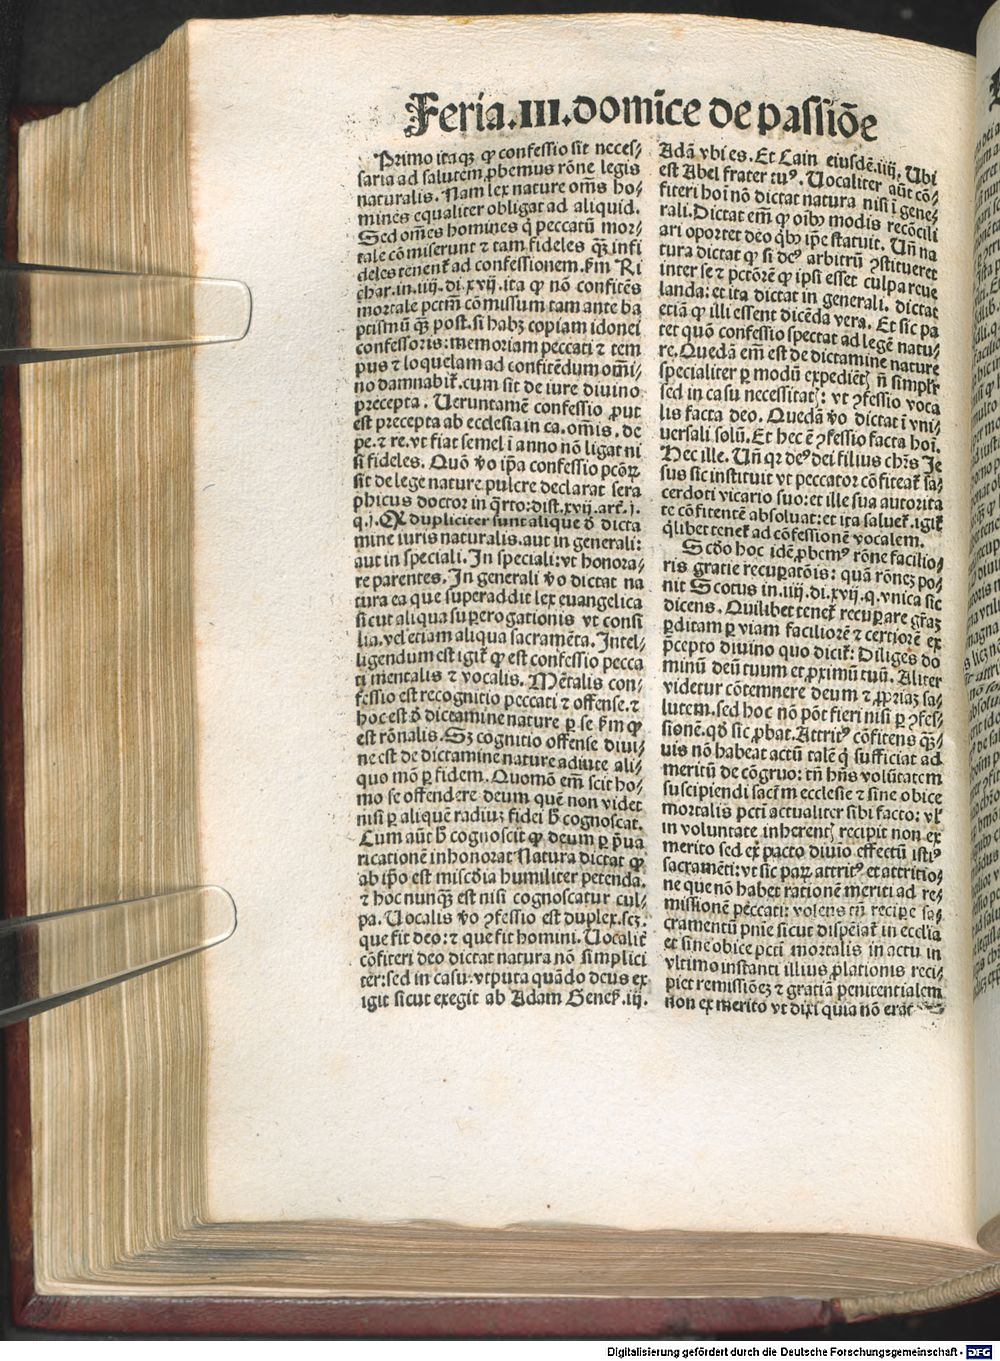 Feria.III.domīce de passiōe
Primo itaqꝫ ꝙ confessio sit neces⸗
saria ad salutem ꝓbemus rōne legis
naturalis. Nam lex nature om̄s ho⸗
mines equaliter obligat ad aliquid.
Sed om̄es homines q̇ peccatū mor⸗
tale cōmiserunt ⁊ tam fideles qꝫ̄ infi
deles tenenꝶ ad confessionem. ẜm Ri
char. in. iiij. di. xvij. ita ꝙ nō confitēs
mortale pctm̄ cōmissum tam ante ba
ptismū qꝫ̄ post. si habꝫ copiam idonei
confessoris: memoriam peccati ⁊ tem
pus ⁊ loquelam ad confitēdum om̄i⸗
no damnabiꝶ. cum sit de iure diuino
precepta. Ueruntamē confessio ꝓut
est precepta ab ecclesia in ca. om̄is. de
pe. ⁊ re. vt fiat semel ī anno nō ligat ni
si fideles. Quō ꝟo ip̄a confessio pcōꝝ
sit de lege nature pulcre declarat sera
phicus doctor in q̄rto: dist. xvij. arꝶ. j.
q. j. Qꝛ dupliciter sunt alique đ dicta
mine iuris naturalis. aut in generali:
aut in speciali. In speciali: vt honora⸗
re parentes. In generali ꝟo dictat na
tura ea que superaddit lex euangelica
sicut aliqua suꝑerogationis vt consi
lia. vel etiam aliqua sacramēta. Intel⸗
ligendum est igiꝶ ꝙ est confessio pecca
ti mentalis ⁊ vocalis. Mētalis con⸗
fessio est recognitio peccati ⁊ offense. ⁊
hoc est đ dictamine nature ꝑ se ẜm ꝙ
est rōnalis. Sꝫ cognitio offense diui⸗
ne est de dictamine nature adiute ali⸗
quo mō ꝑ fidem. Quomō em̄ scit ho⸗
mo se offendere deum quē non videt
nisi ꝑ aliquē radiuꝫ fidei ħ cognoscat.
Cum aūt ħ cognoscit ꝙ deum ꝑ p̄ua
ricationē inhonorat Natura dictat ꝙ
ab ip̄o est misc̄dia humiliter petenda.
⁊ hoc nunqꝫ̄ est nisi cognoscatur cul⸗
pa. Uocalis ꝟo ꝯfessio est duplex. scꝫ.
que fit deo: ⁊ que fit homini. Uocaliꝶ
cōfiteri deo dictat natura nō simplici
ter: sed in casu. vtputa quādo deus ex
igit sicut exegit ab Adam Geneꝶ. iij.
Adā vbi es. Et Cain eiusdē. iiij. Ubi
est Abel frater tuꝰ. Uocaliter aūt cō⸗
fiteri hoī nō dictat natura nisi ī gene⸗
rali. Dictat em̄ ꝙ oībꝰ modis recōcili
ari oportet deo q̇bꝰ ip̄e statuit. Uñ na
tura dictat ꝙ si deꝰ arbitrū ꝯstitueret
inter se ⁊ pctōrē ꝙ ipsi esset culpa reue
landa: et ita dictat in generali. dictat
etiā ꝙ illi essent dicēda vera. Et sic pa
tet quō confessio spectat ad legē natu⸗
re. Quedā em̄ est de dictamine nature
specialiter ꝑ modū expediētꝭ ñ simplꝶ
sed in casu necessitatꝭ: vt ꝯfessio voca
lis facta deo. Quedā ꝟo dictat ī vni⸗
uersali solū. Et hec ē ꝯfessio facta hoī.
Hec ille. Uñ qꝛ deꝰ dei filius chr̄s Je
sus sic instituit vt peccator cōfiteaꝶ sa⸗
cerdoti vicario suo: et ille sua autorita
te cōfitentē absoluat: et ita salueꝶ. igiꝶ
q̇libet teneꝶ ad cōfessionē vocalem.
Scđo hoc idē ꝓbemꝰ rōne facilio⸗
ris gratie recuꝑatōis: quā rōneꝫ po⸗
nit Scotus in. iiij. di. xvij. q. vnica sic
dicens. Quilibet teneꝶ recuꝑare gr̄aꝫ
ꝑditam ꝑ viam faciliorē ⁊ certiorē ex
p̄cepto diuino quo diciꝶ: Diliges do
minū deū tuum et ꝓximū tuū. Aliter
videtur cōtemnere deum ⁊ ꝓpriaꝫ sa⸗
lutem. sed hoc nō pōt fieri nisi ꝑ ꝯfes⸗
sionē. qđ sic ꝓbat. Attritꝰ cōfitens qꝫ̄⸗
uis nō habeat actū talē q̇ sufficiat ad
meritū de cōgruo: tñ hñs volūtatem
suscipiendi sacr̄m ecclesie ⁊ sine obice
mortalis pcti actualiter sibi facto: vl̓
in voluntate inherentꝭ recipit non ex
merito sed ex pacto diuīo effectū istiꝰ
sacramēti: vt sic paꝝ attritꝰ et attritio⸗
ne que nō habet rationē meriti ad re⸗
missionē peccati: volens tñ recipe sa⸗
cramentū pnīe sicut dispēsaꝶ in ecclīa
et sine obice pcti mortalis in actu in
vltimo instanti illius ꝓlationis reci⸗
piet remissiōeꝫ ⁊ gratiā penitentialem
non ex merito vt dixi quia nō erat
Digitalisierung gefördert durch die Deutsche Forschungsgemeinschaft - DFG